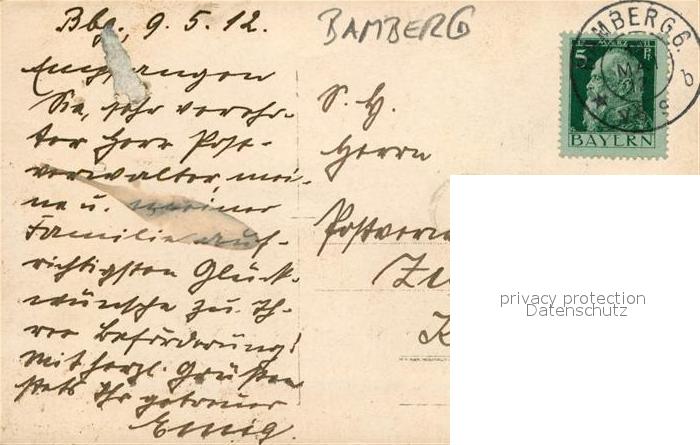 Bbg, 9. 5. 12.
Empfangen
Sie, sehr verehr-
ter Herr Post-
verwalter, mei-
ne u. meiner
Familie auf-
richtigsten Glück-
wünsche zu Ih-
rer Beförderung!
Mit herzl. Grüßen
stets Ihr getreuer
Emig.
BAMBERG
S. H.
Herrn
Postverw
Zu
K
MBERG 6.
b
5 Pf
BAYERN
privacy protection
Datenschutz